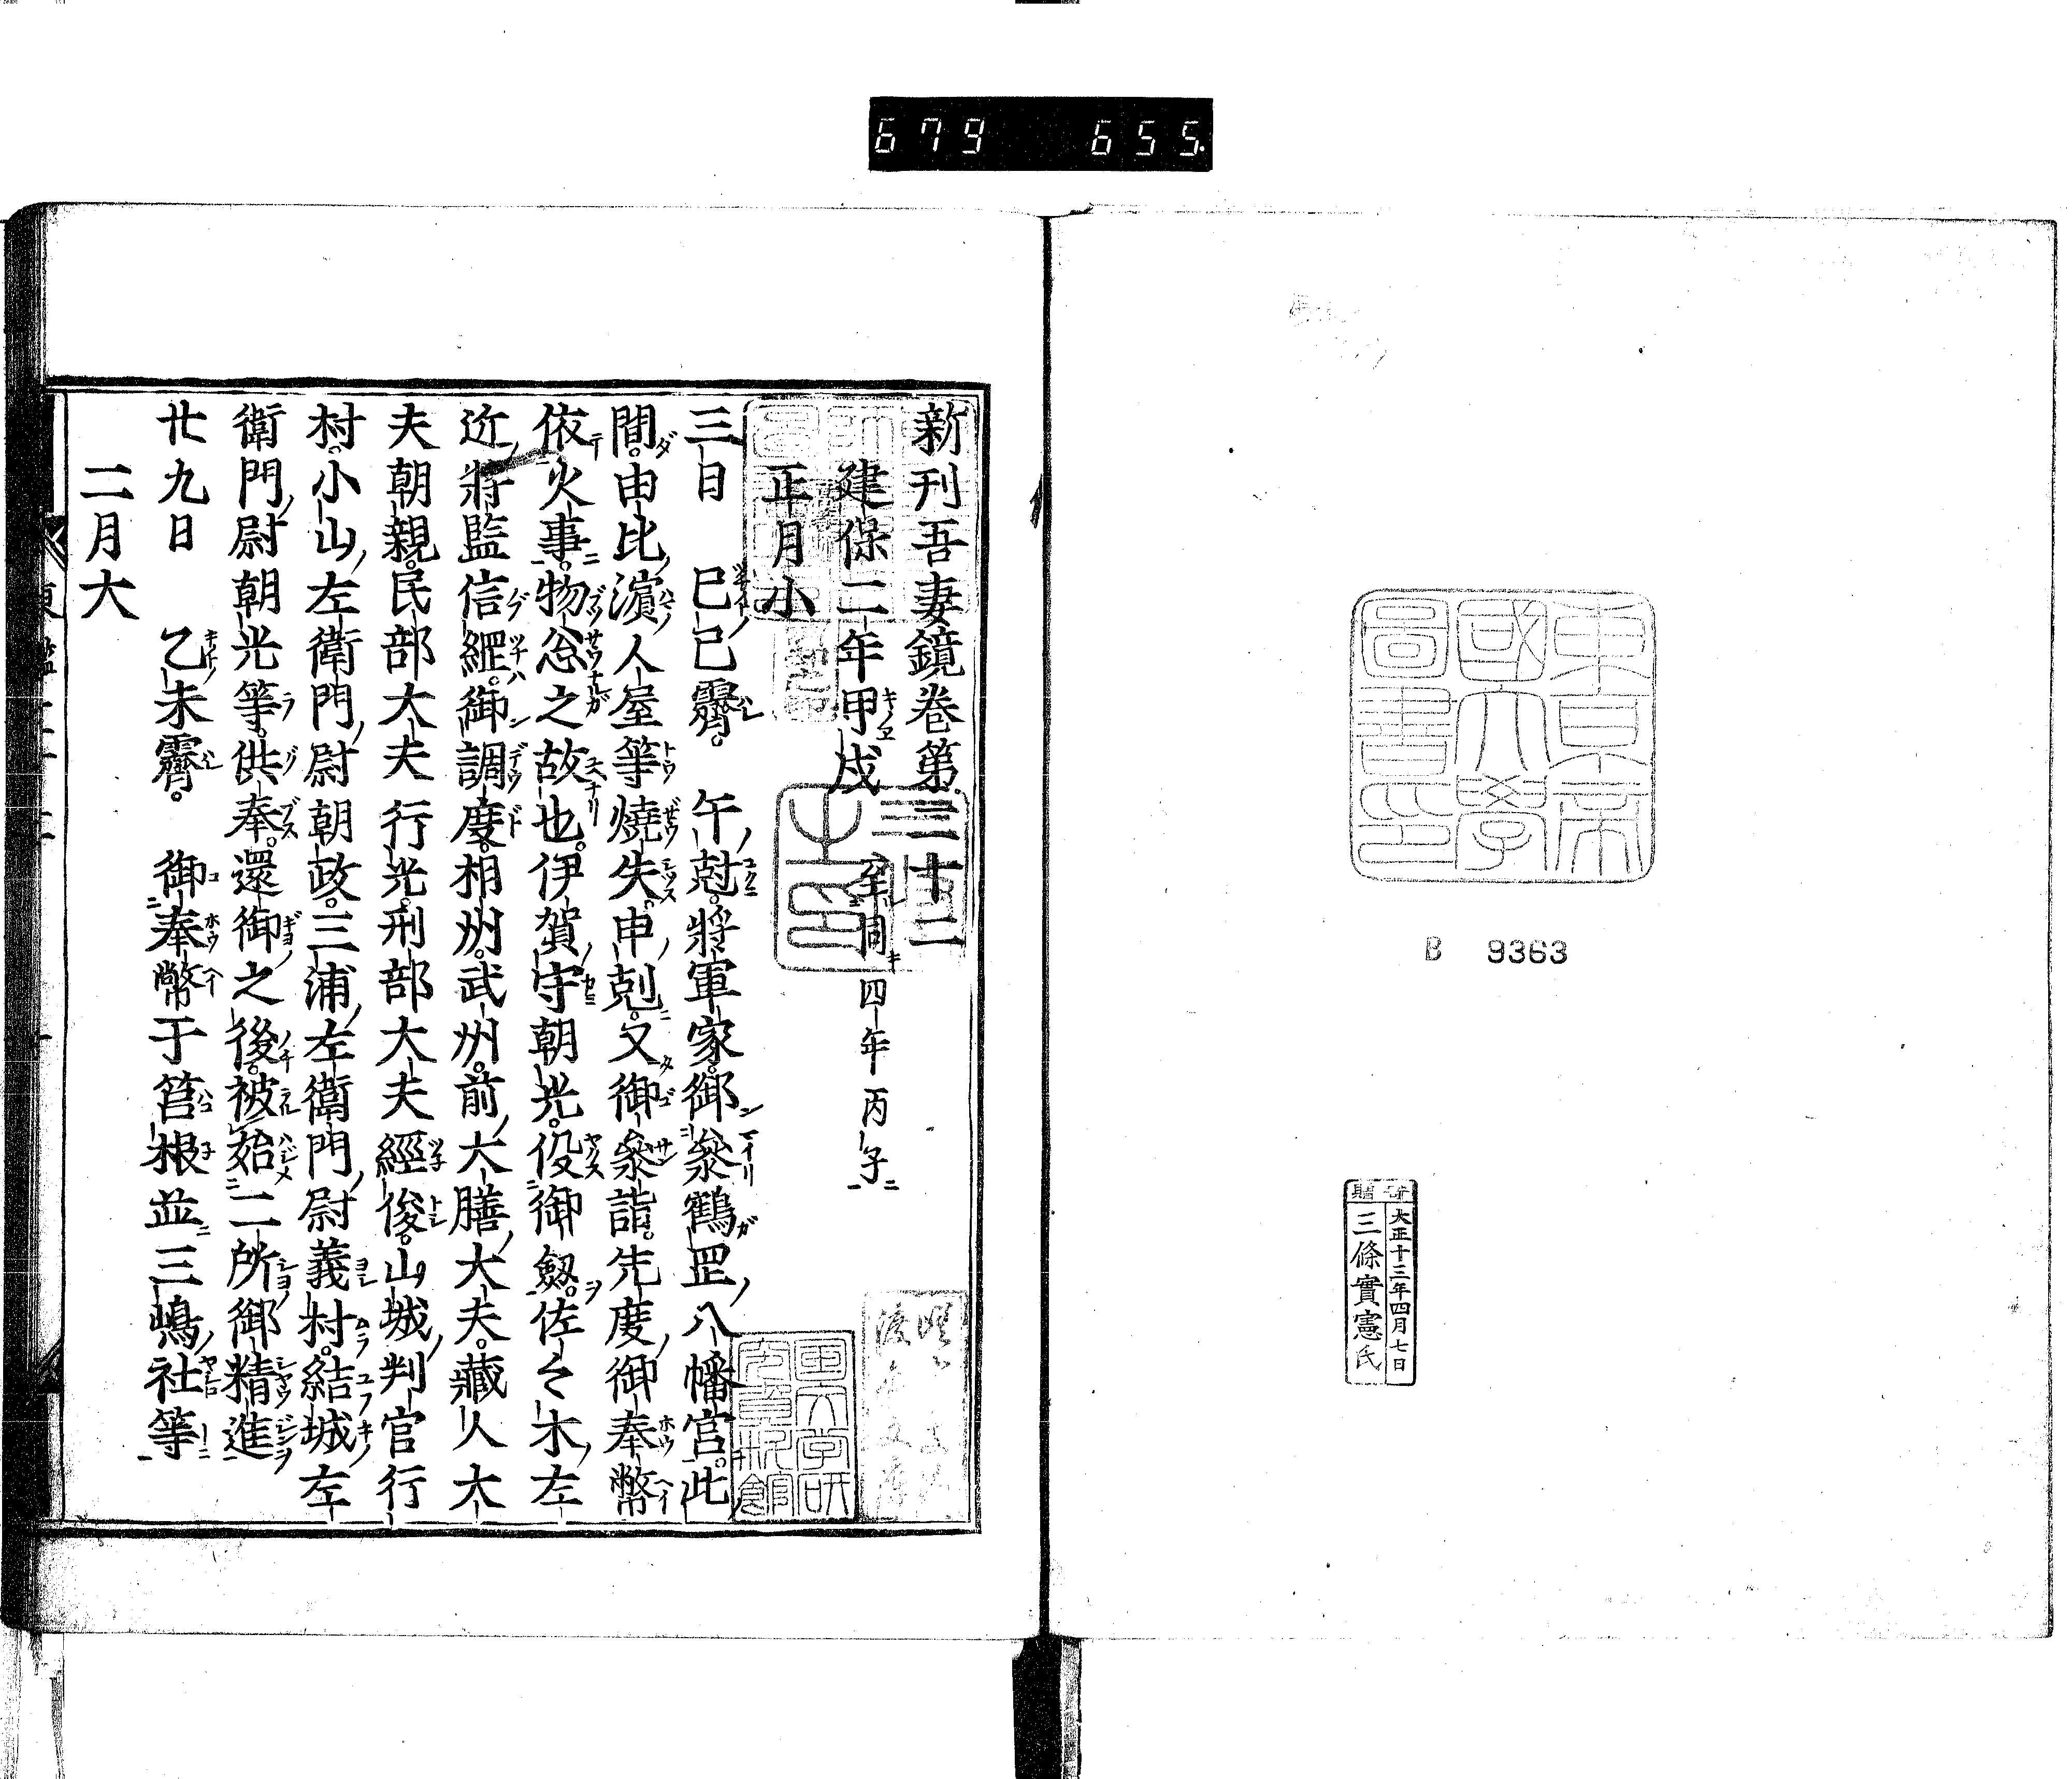 679 655
東京帝
國大學
圖書印
B 9363
寄贈
大正十三年四月七日
三條實憲氏
新刊吾妻鏡卷第二十二
建保二年甲戌 至同四年丙子
正月小
三日 己巳霽。 午尅。將軍家。御參鶴罡八幡宮。此
間。由比濵人屋等燒失。申剋。又御參詣。先度御奉幣
依火事。物忩之故也。伊賀守朝光。役御劔。佐々木左
近將監信綱。御調度。相州。武州。前大膳大夫。藏人大
夫朝親。民部大夫行光。刑部大夫經俊。山城判官行
村。小山左衛門尉朝政。三浦左衛門尉義村。結城左
衛門尉朝光等。供奉。還御之後。被始二所御精進
廿九日 乙未霽。 御奉幣于筥根並三嶋社等
二月大